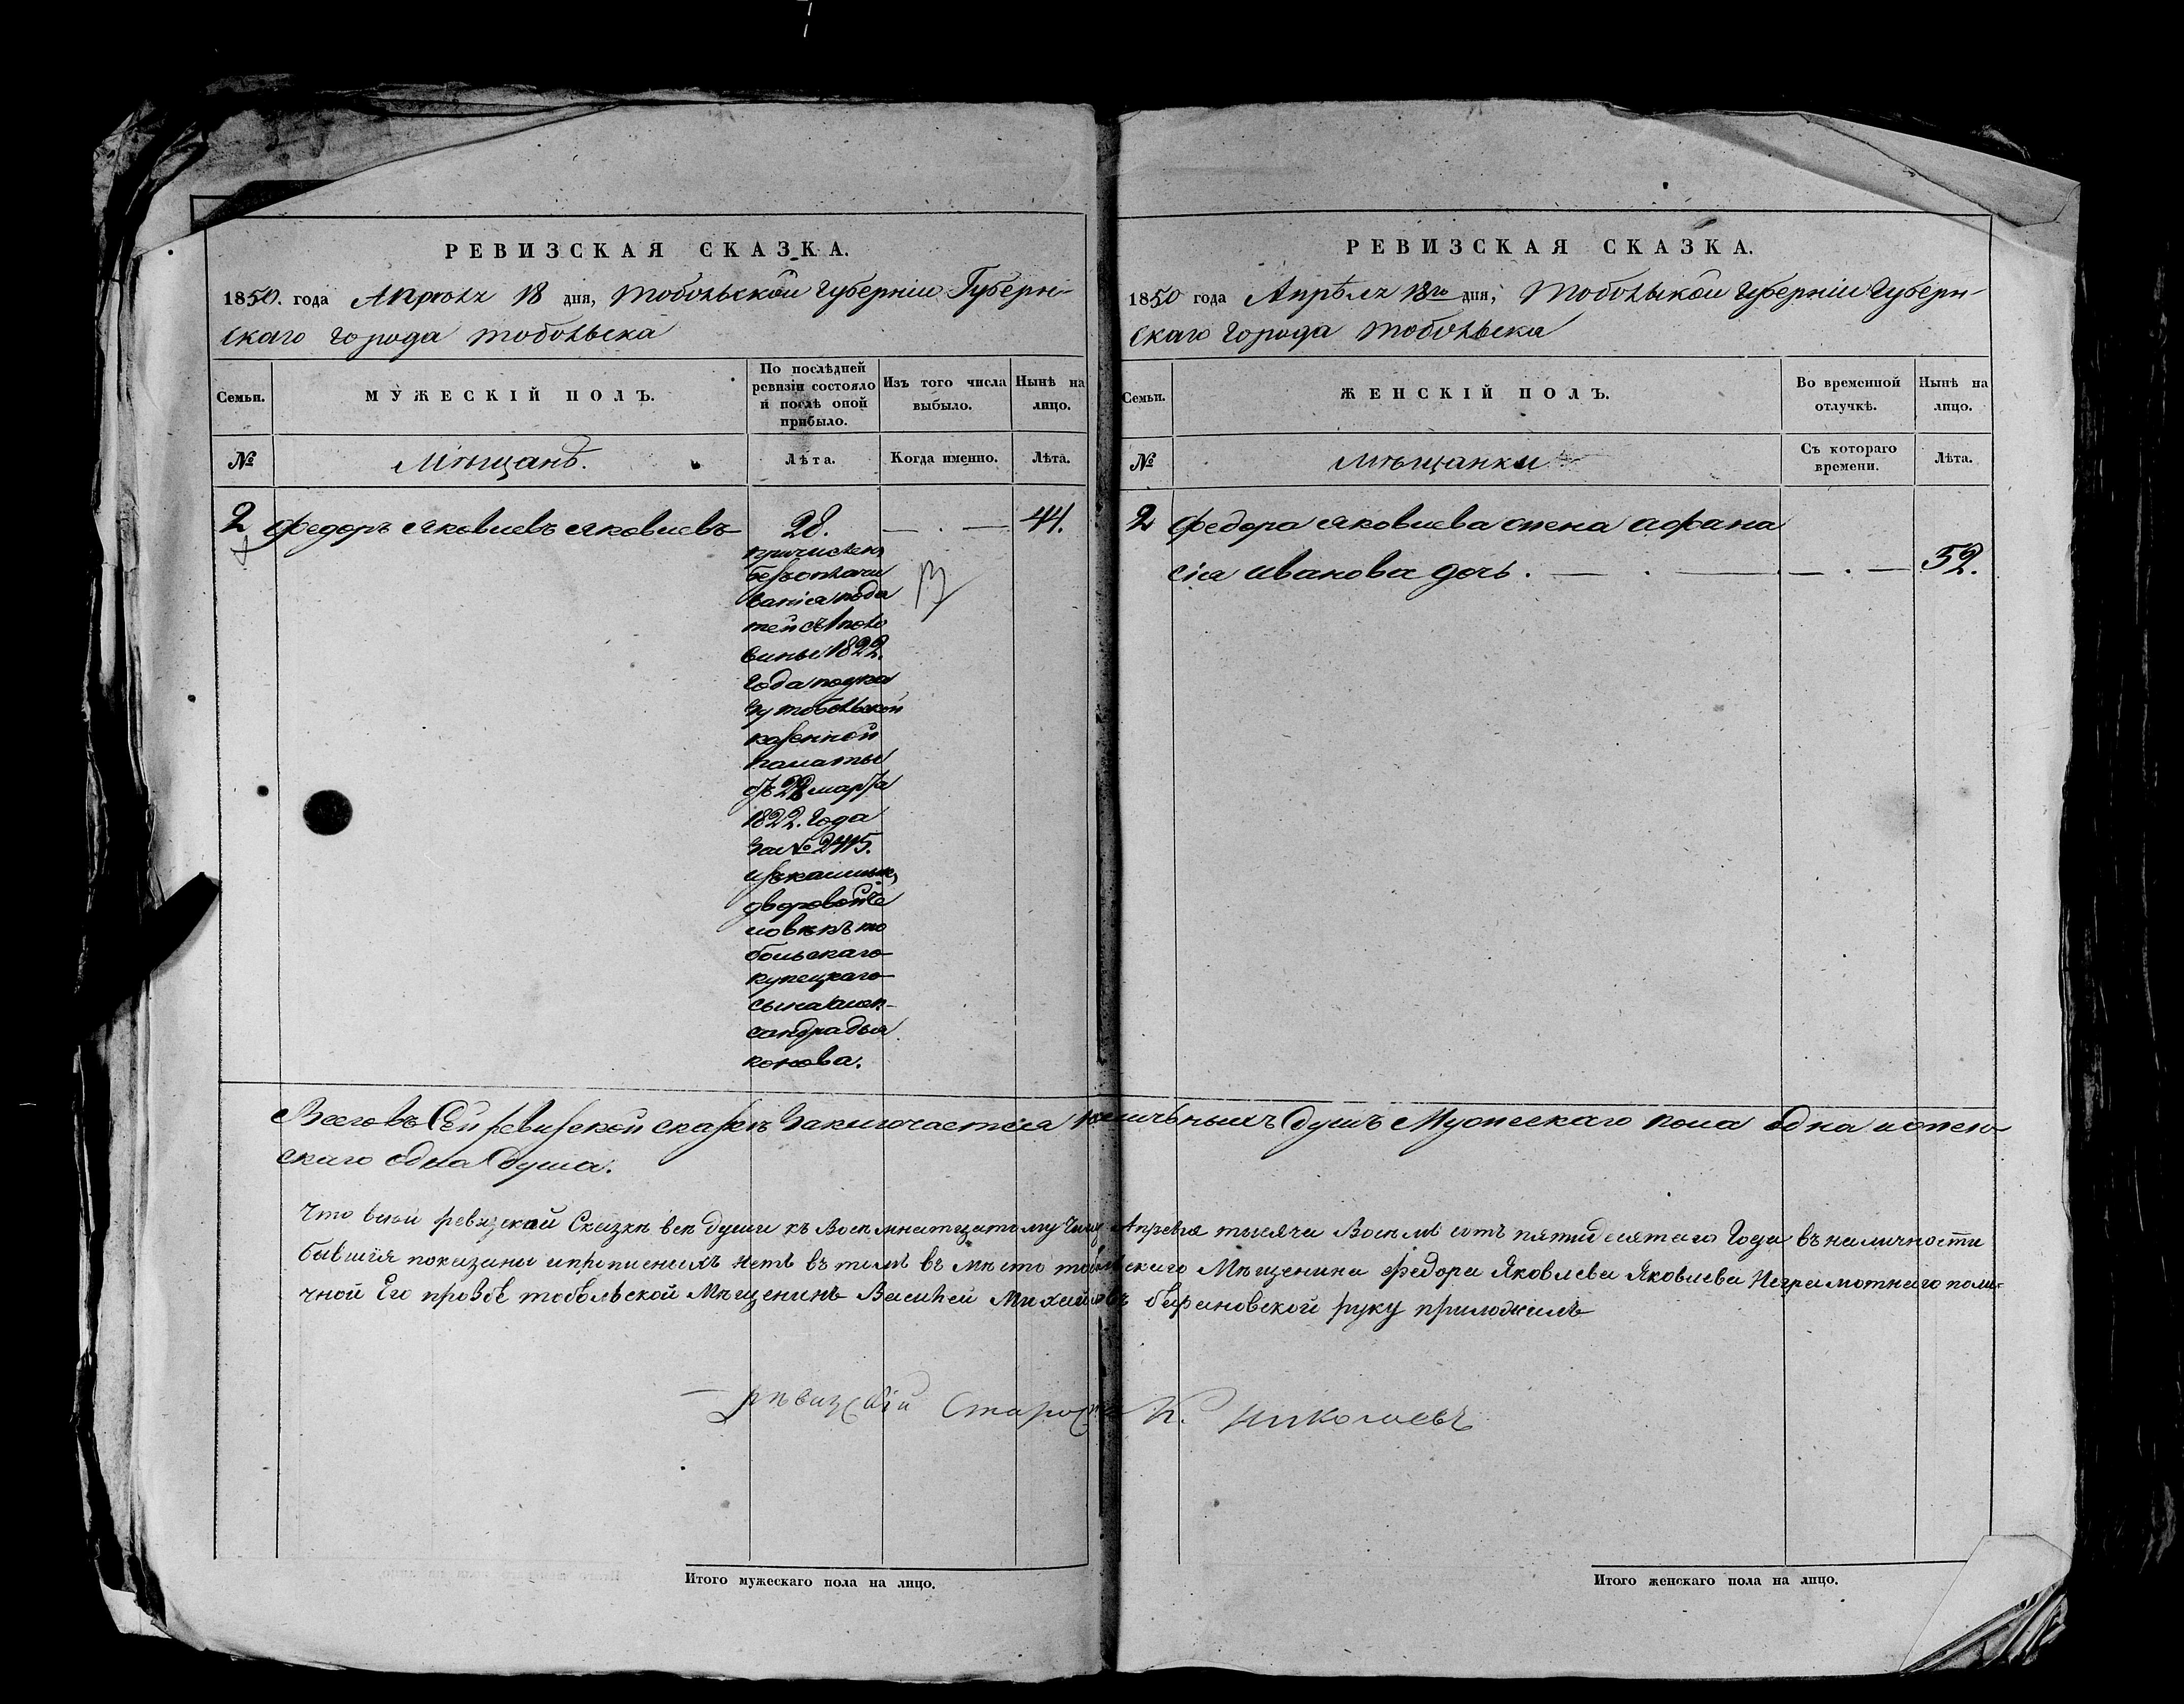 РЕВИЗСКАЯ СКАЗКА.
1850. года Апреля 18 дня, Тобольской Губерніи Губерн-
скаго города Тобольска
Семьи.
МУЖЕСКІЙ ПОЛЪ.
По послѣдней
ревизіи состояло
и послѣ оной
прибыло.
Изъ того числа
выбыло.
Нынѣ на
лицо.
№
Мѣщанъ.
Лѣта.
Когда именно.
Лѣта.
2 Федоръ Яковлевъ Яковлевъ 28. — . — 44.
причислен
безоплачи
ванія пода
тей съ 1 поло
вины 1822.
года поука
зу тобольской
казенной
палаты
отъ марта
1822. года
за № 2415.
дворовой че
ловѣкъ то
больскаго
купецкаго
сына Алек-
сандра дья
конова.
РЕВИЗСКАЯ СКАЗКА.
1850 года Апрѣля 18го дня, Тобольской Губерніи Губерн-
скаго города Тобольска
Семьи.
ЖЕНСКІЙ ПОЛЪ.
Во временной
отлучкѣ.
Нынѣ на
лицо.
№
мѣщанки
Съ котораго
времени.
Лѣта.
2 Федора Яковлева жена афана
сія иванова дочь. — . — — . — 52.
Всего въ Сей ревизской сказкѣ заключается наличныхъ душъ Мужескаго пола одна и жен-
скаго одна душа.
Что всей ревизской Сказкѣ все души къ Восемнатцатому Числу Апреля тысяча Восемь сотъ пятидесятаго Года въ наличности
бывшія показаны и прописныхъ нетъ въ томъ въ мѣсто тобольскаго Мѣщенина Федора Яковлева Яковлева Неграмотнаго поли-
чной Его прозбе тобольской Мѣщенинъ Василей Михайловъ руку приложилъ
рѣвизскій Староста Николаевъ
Итого мужескаго пола на лицо.
Итого женскаго пола на лицо.